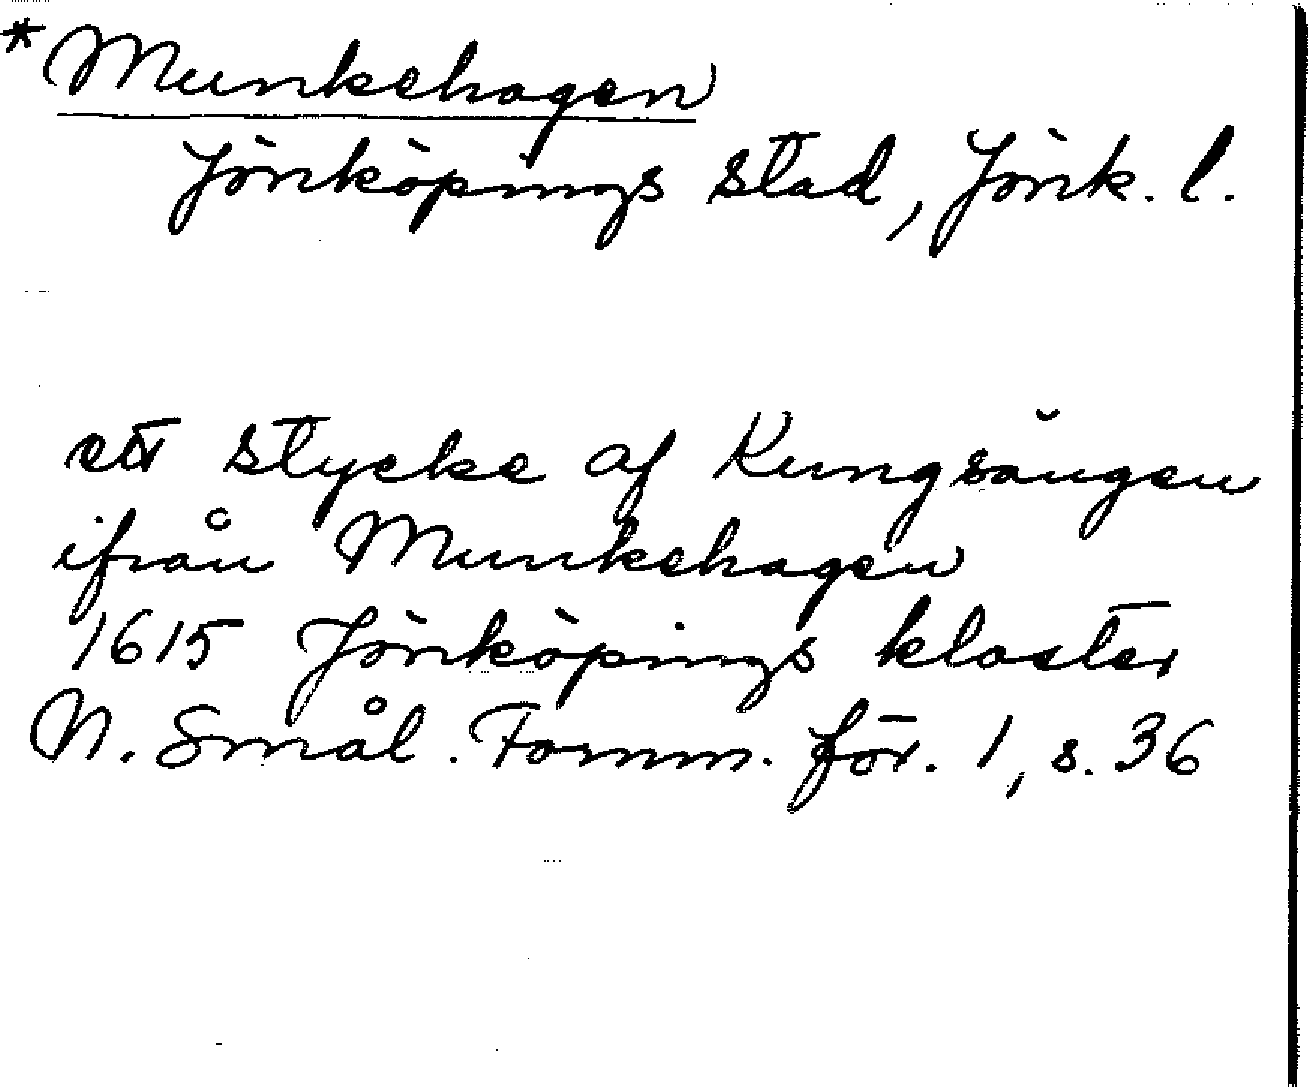 *Munkehagen
Jönköpings stad, Jönk. l.
ett stycke af Kungsängen
ifrån Munkehagen
1615 Jönköpings kloster
N. Smål. Fornm. för. 1, s. 36